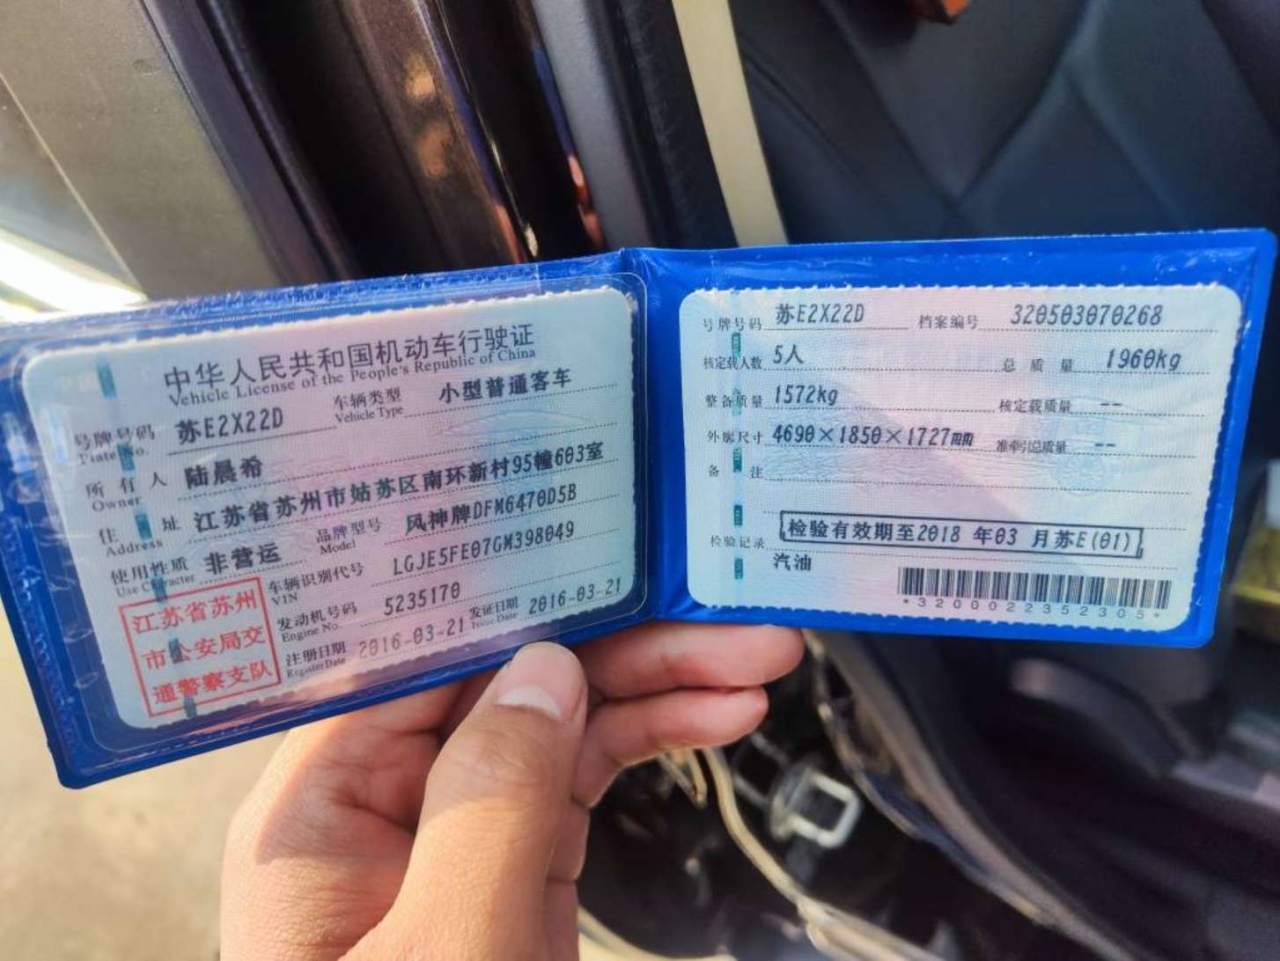 中华人民共和国机动车行驶证
Vehicle License of the People's Republic of China
号牌号码 苏E2X22D 车辆类型 小型普通客车
Plate No. Vehicle Type
所有人 陆晨希
Owner
住址 江苏省苏州市姑苏区南环新村95幢603室
Address
使用性质 非营运 品牌型号 风神牌DFM6470D5B
Use Character Model
车辆识别代号 LGJE5FE07GM398049
VIN
发动机号码 5235170
Engine No.
注册日期 2016-03-21 发证日期 2016-03-21
Register Date Issue Date
江苏省苏州
市公安局交
通警察支队
号牌号码 苏E2X22D 档案编号 320503070268
核定载人数 5人 总质量 1960kg
整备质量 1572kg 核定载质量 --
外廓尺寸 4690×1850×1727mm 准牵引总质量 --
备注
检验有效期至2018 年03 月苏E(01)
检验记录
汽油
*3200022352305*